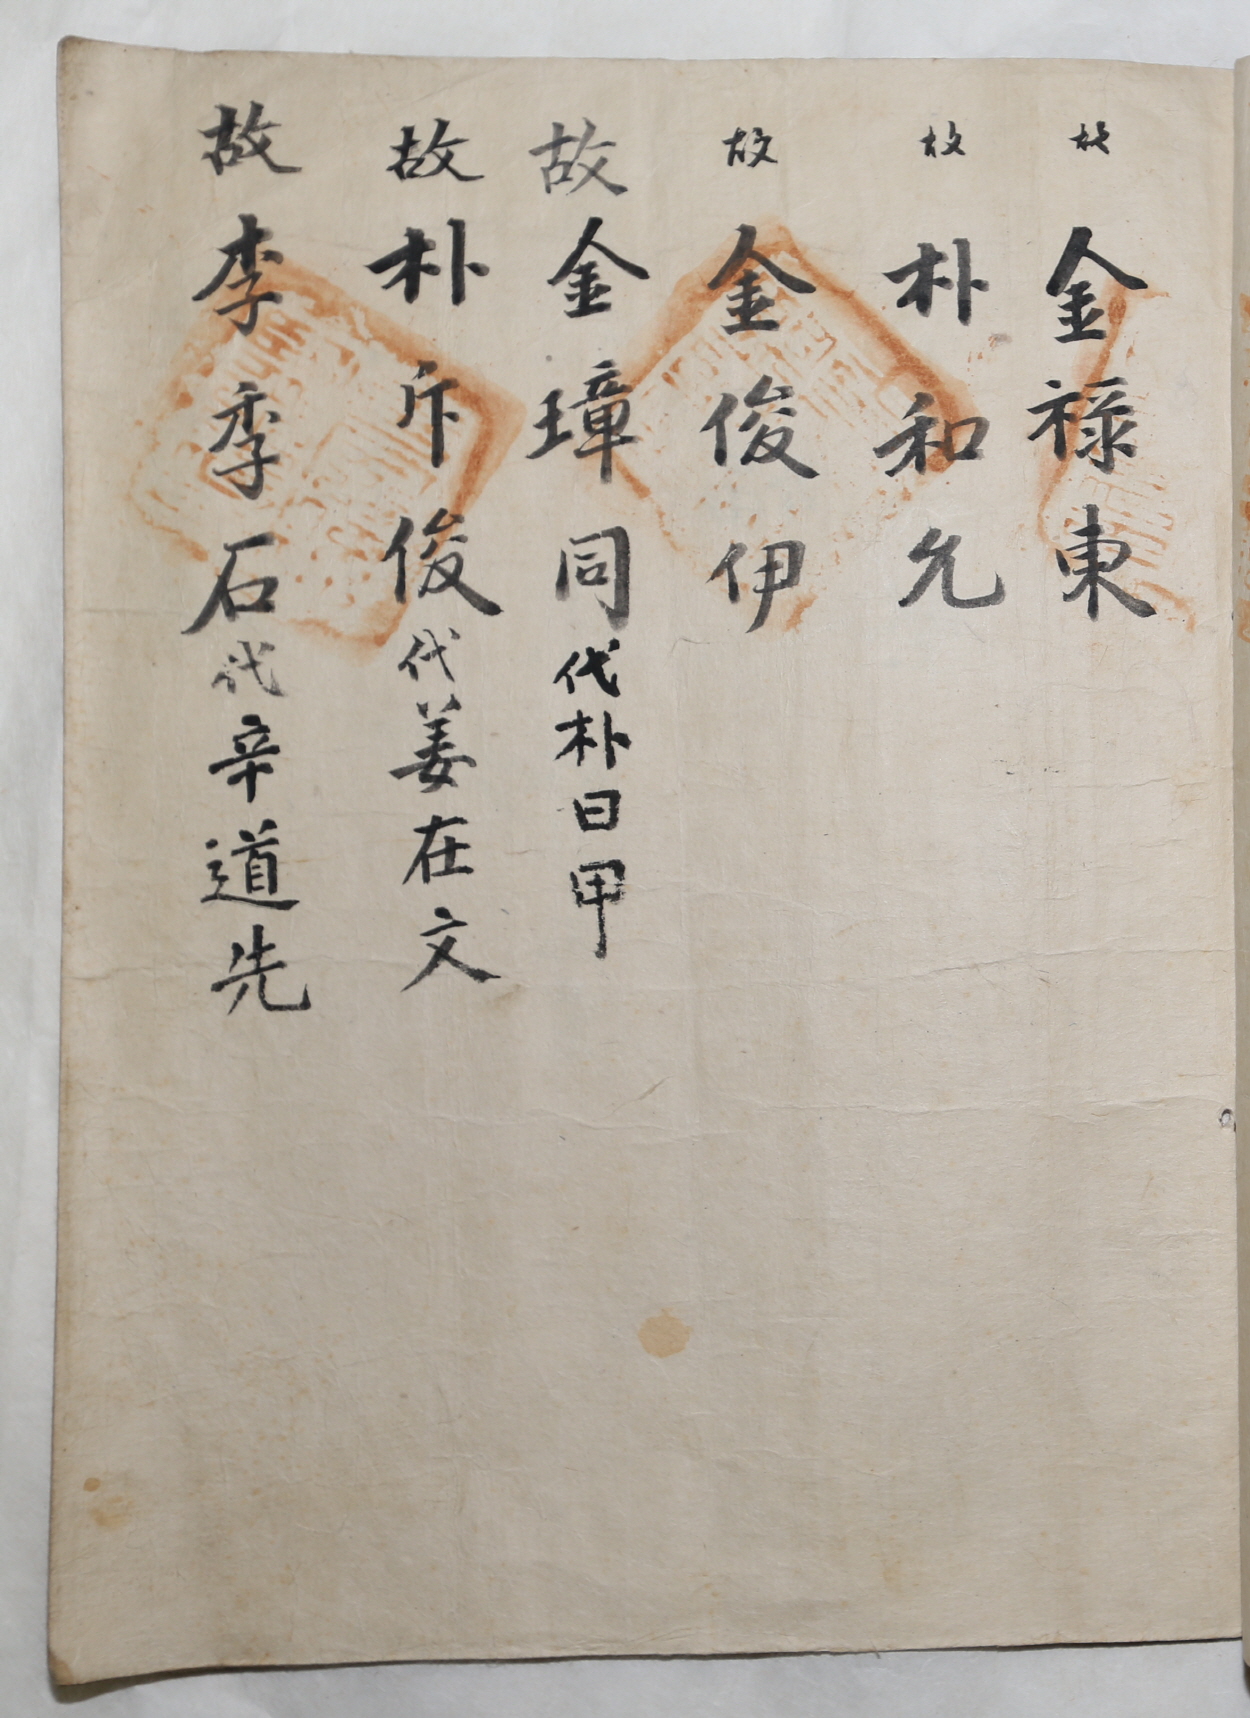 故 金祿東
故 朴和允
故 金俊伊
故 金璋同 代 朴曰甲
故 朴斤俊 代 姜在文
故 李季石 代 辛道先